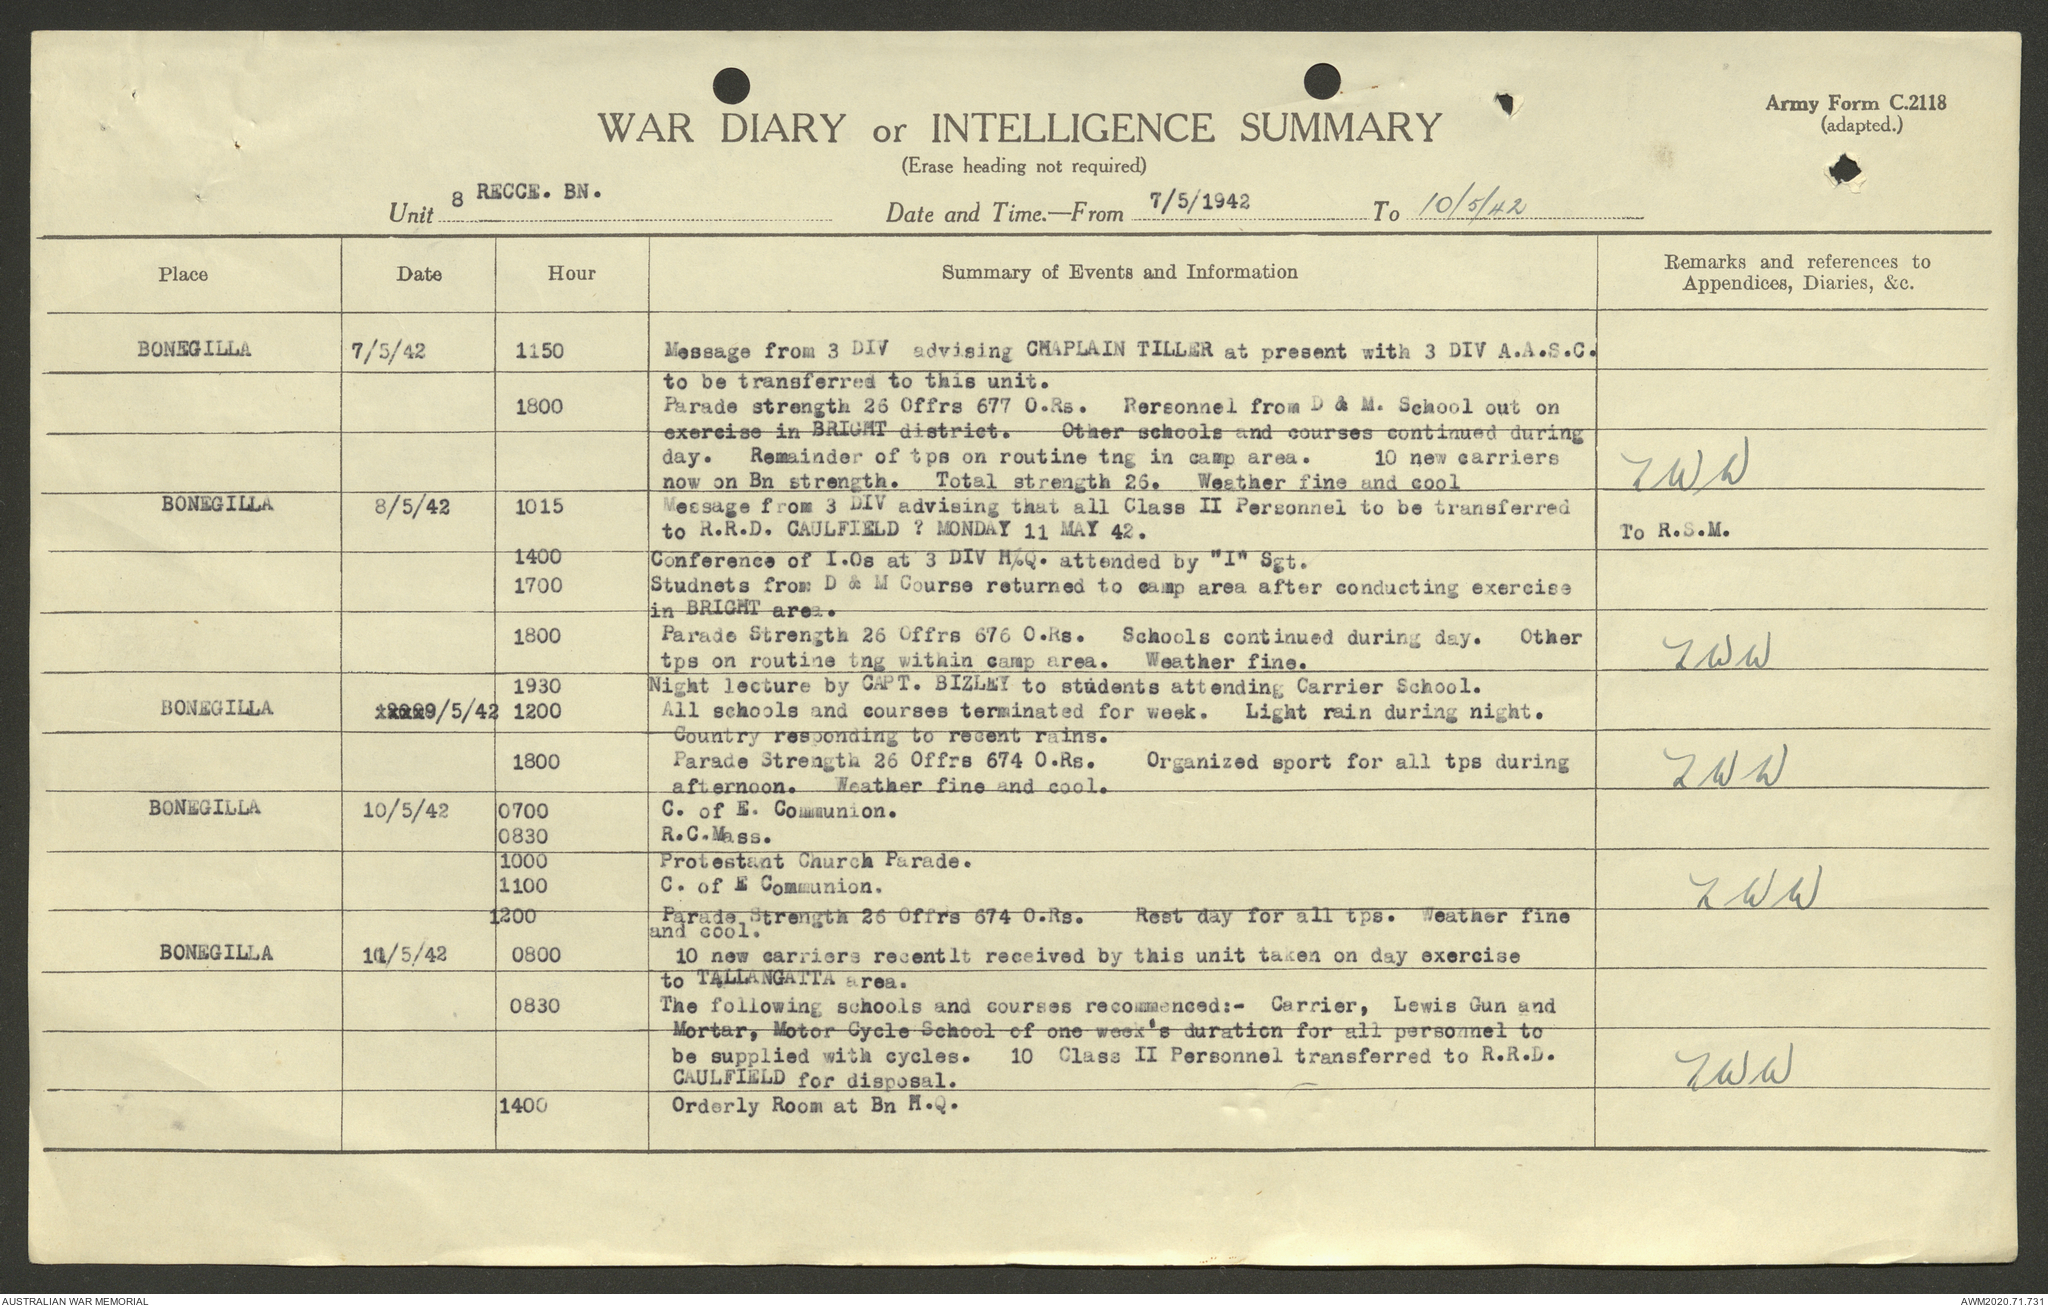 Army Form C.2118
(adapted.)
WAR DIARY or INTELLIGENCE SUMMARY
(Erase heading not required)
Unit 8 RECCE. BN. Date and Time.—From 7/5/1942 To 10/5/42
Place Date Hour Summary of Events and Information Remarks and references to
Appendices, Diaries, &c.
BONEGILLA 7/5/42 1150 Message from 3 DIV advising CHAPLAIN TILLER at present with 3 DIV A.A.S.C.
to be transferred to this unit.
1800 Parade strength 26 Offrs 677 O.Rs. Rersonnel from D & M. School out on
exercise in BRIGHT district. Other schools and courses continued during
day. Remainder of tps on routine tng in camp area. 10 new carriers
now on Bn strength. Total strength 26. Weather fine and cool
BONEGILLA 8/5/42 1015 Message from 3 DIV advising that all Class II Personnel to be transferred
to R.R.D. CAULFIELD ? MONDAY 11 MAY 42. To R.S.M.
1400 Conference of I.Os at 3 DIV H.Q. attended by "I" Sgt.
1700 Studnets from D & M Course returned to camp area after conducting exercise
in BRIGHT area.
1800 Parade Strength 26 Offrs 676 O.Rs. Schools continued during day. Other
tps on routine tng within camp area. Weather fine.
1930 Night lecture by CAPT. BIZLEY to students attending Carrier School.
BONEGILLA 9/5/42 1200 All schools and courses terminated for week. Light rain during night.
Country responding to recent rains.
1800 Parade Strength 26 Offrs 674 O.Rs. Organized sport for all tps during
afternoon. Weather fine and cool.
BONEGILLA 10/5/42 0700 C. of E. Communion.
0830 R.C.Mass.
1000 Protestant Church Parade.
1100 C. of E Communion.
1200 Parade Strength 26 Offrs 674 O.Rs. Rest day for all tps. Weather fine
and cool.
BONEGILLA 11/5/42 0800 10 new carriers recentlt received by this unit taken on day exercise
to TALLANGATTA area.
0830 The following schools and courses recommenced:- Carrier, Lewis Gun and
Mortar, Motor Cycle School of one week's duration for all personnel to
be supplied with cycles. 10 Class II Personnel transferred to R.R.D.
CAULFIELD for disposal.
1400 Orderly Room at Bn H.Q.
AUSTRALIAN WAR MEMORIAL AWM2020.71.731